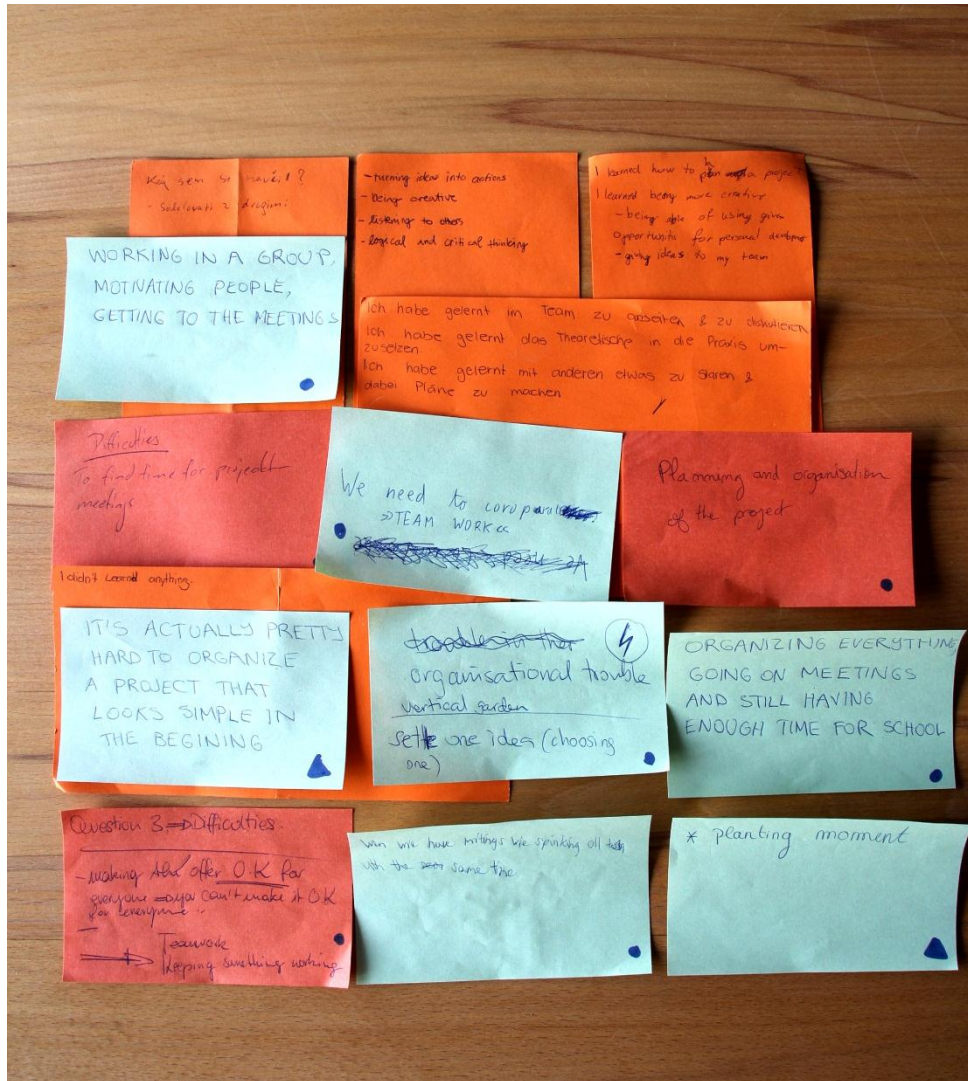 Kaj sem se naučil?
- Sodelovati z drugimi
- turning ideas into actions
- being creative
- listening to others
- logical and critical thinking
I learned how to plan a project
I learned being more creative
- being able of using given
opportunits for personal
- giving ideas to my team
WORKING IN A GROUP,
MOTIVATING PEOPLE,
GETTING TO THE MEETINGS
Ich habe gelernt im Team zu arbeiten & zu diskutieren
Ich habe gelernt das Theoretische in die Praxis um-
zusetzen.
Ich habe gelernt mit anderen etwas zu planen &
dabei Pläne zu machen
Difficulties
To find time for project
meetings
We need to
»TEAM WORK«
Planning and organisation
of the project
I didn't learnd anything.
IT'S ACTUALLY PRETTY
HARD TO ORGANIZE
A PROJECT THAT
LOOKS SIMPLE IN
THE BEGINING
organisational trouble
vertical garden
settle one idea (choosing
one)
ORGANIZING EVERYTHING,
GOING ON MEETINGS
AND STILL HAVING
ENOUGH TIME FOR SCHOOL
Question 3 ⇒ Difficulties
- making the offer O.K for
everyone ⇒ you can't make it OK
for everyone
Teamwork
Keeping something working
we have mitings we all
the same time
* planting moment